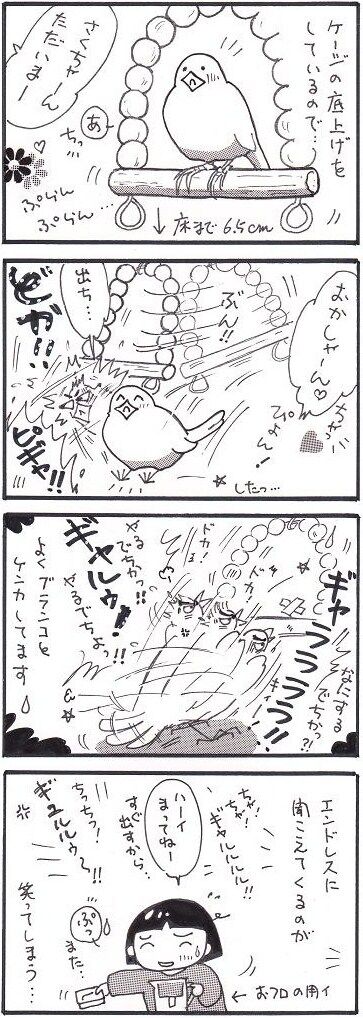 ケージの底上げを
しているので…
さくちゃーん
ただいまー
あ
ちっ…
ぷらん
ぷらん…
↓床まで6.5cm
おかしゃーん♡
ちゃっ
ぴょん!
ぶん!!
出ち…
ビガ!!
ピギャ!!
したっ…
ギャララララ!!
なにする
でちかっ?!
ドカ!
ドカ!
キィー!
やる
でちかっ!!
ギャルゥ!
やるでちょっ!!
よくブランコと
ケンカしてます
エンドレスに
聞こえてくるのが
ちゃ!
ちゃ!
ギャルルルル!!
ハーイ
まってねー
すぐ出すから…
ちっちっ!
ギュルルゥ〜!!
ぷっ
また…
笑ってしまう…
←おフロの用イ